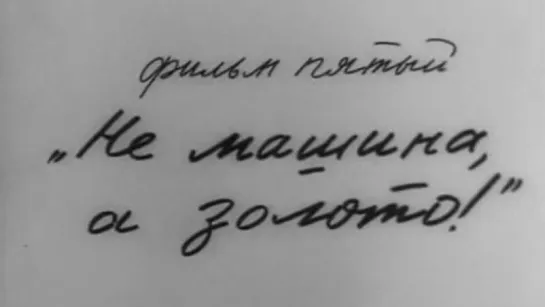 фильм пятый
„Не машина,
а золото!”